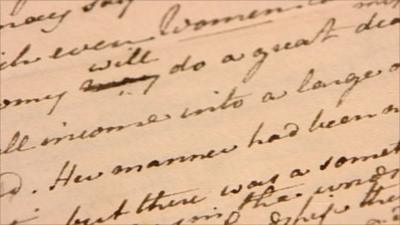 may say
ich even Women
will
omy may do a great dea
ll income into a large o
d. Her manner had been
but there was a somet
in the word